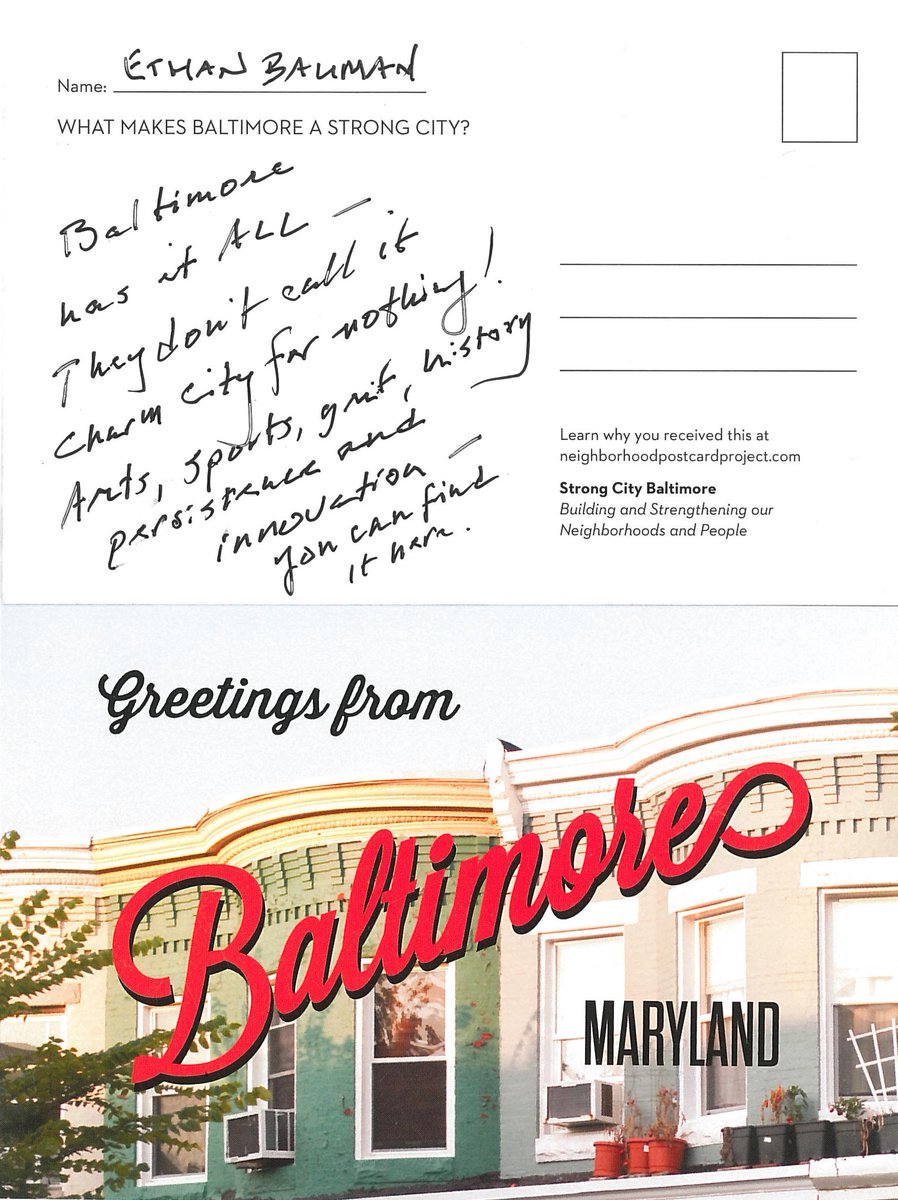 Name: ETHAN BAUMAN
WHAT MAKES BALTIMORE A STRONG CITY?
Baltimore
has it ALL –
They don't call it
Charm City for nothing!
Arts, sports, grit, history
persistence and
innovation –
you can find
it here.
Learn why you received this at
neighborhoodpostcardproject.com
Strong City Baltimore
Building and Strengthening our
Neighborhoods and People
Greetings from
Baltimore
MARYLAND